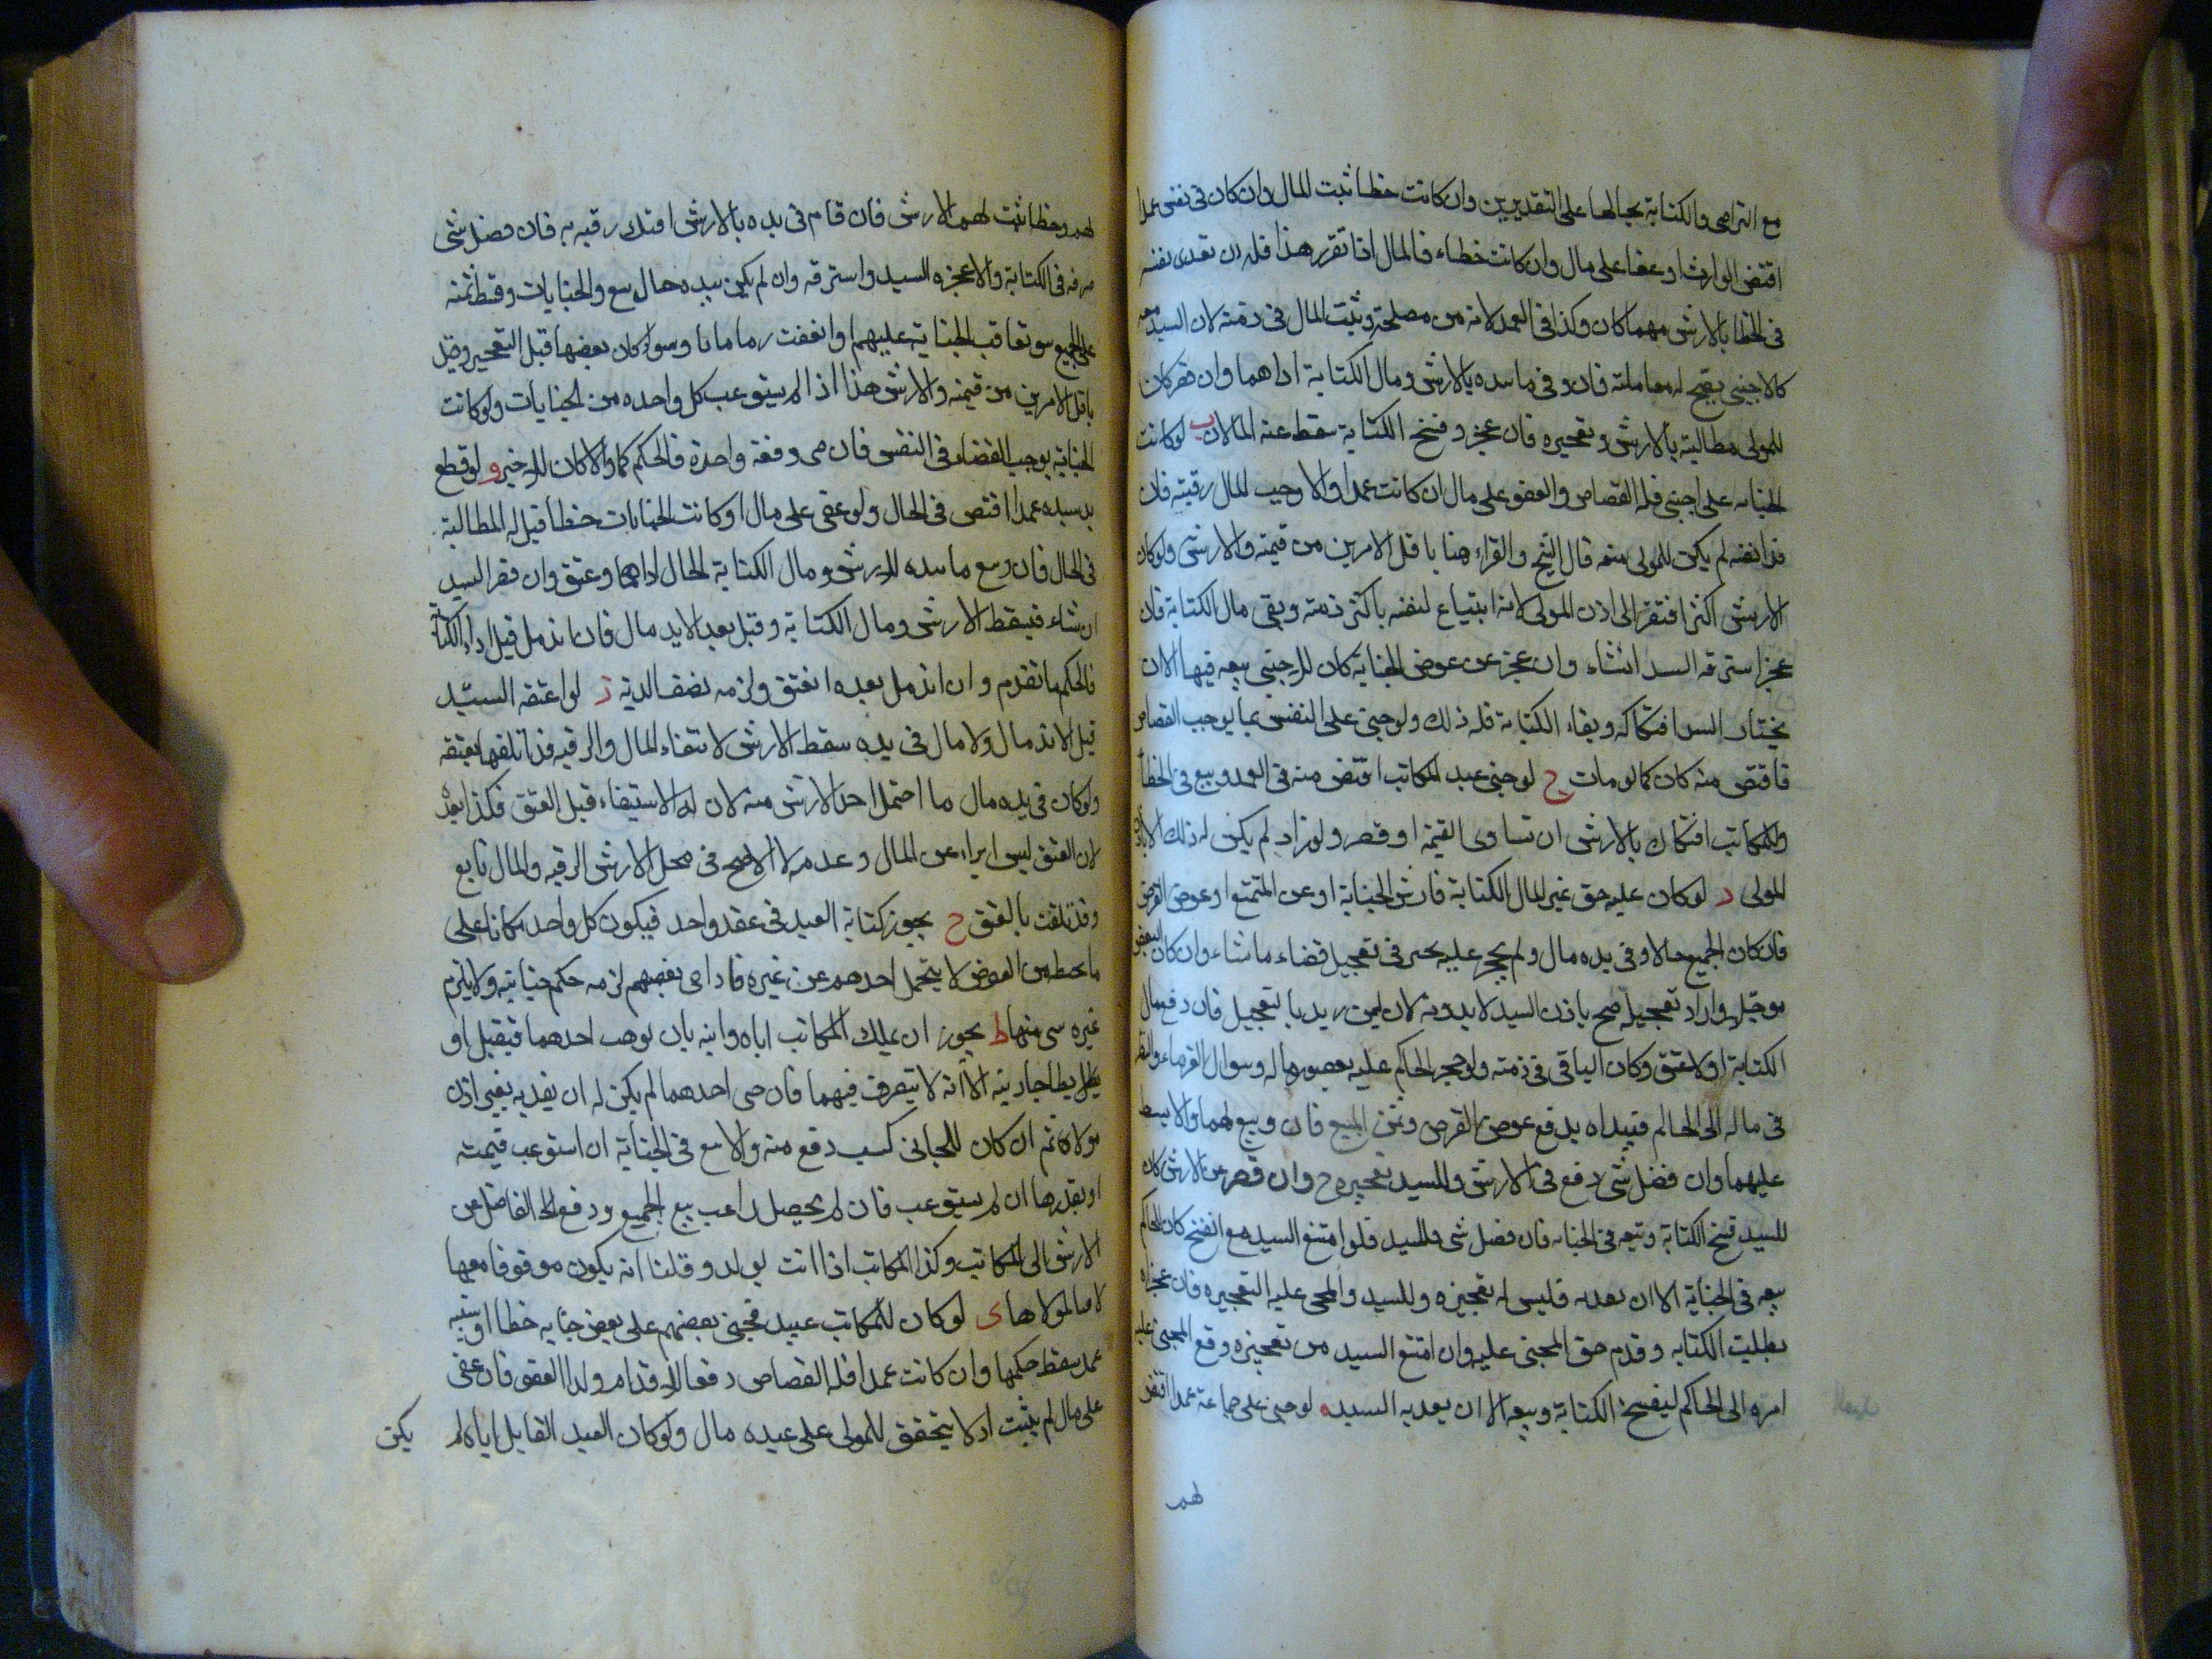 مع التراضى والكتابة بحالها على التقديرين وان كانت خطا ثبت المال وان كان فى نفس عمدا
اقتص الوارث او عفا على مال وان كانت خطاء فالمال اذا تقرر هذا فله ان يفدى نفسه
فى الخطا بالارش مهما كان وكذا فى العمد لانه من مصلحته ويثبت المال فى ذمته لان السيد معه
كالاجنبى يصح له معاملته فان وفى ما بيده بالارش ومال الكتابة اداهما وان قصر كان
للمولى مطالبته بالارش وتعجيزه فان عجزه وفسخ الكتابة سقط عنه المالان ب لو كانت
الجنايه على اجنبى فله القصاص والعفو على مال ان كانت عمدا والا وجب المال رقبته فان
فدا نفسه لم يكن للمولى منعه قال الشيخ والفراء هنا باقل الامرين من قيمته والارش ولو كان
الارش اكثر افتقر الى اذن المولى لانه ابتياع لنفسه باكثر ذمته وبقى مال الكتابة فان
عجز استرقه السيد انشاء وان عجز عن عوض الجناية كان للاجنبى بيعه فيها الا ان
يختار السيد افتكاكه وبقاء الكتابة فله ذلك ولو جنى على النفس بما يوجب القصاص
فاقتص منه كان كما لو مات ج لو جنى عبد المكاتب اقتص منه فى العمد وبيع فى الخطأ
وللمكاتب افتكاك بالارش ان تساوى القيمة او قصر ولو زاد لم يكن له ذلك الا باذن
المولى د لو كان عليه حق غير المال الكتابة فارش الجناية او عن المتمتع او عوض القرض
فان كان الجميع حالا وفى يده مال ولم يحجر عليه تخير فى تعجيل قضاء ما شاء وان كان البعض
موجلا واراد تعجيله صح باذن السيد لا بدونه لان ليمن ريد بالتعجيل فان دفع مال
الكتابة اولا عتق وكان الباقى فى ذمته ولو حجر الحاكم عليه بقصور ماله وسوال الغرماء والنظر
فى ماله الى الحاكم فيبداه بدفع عوض القرض وثمن المبيع فان وسع لهما والا بسط
عليهما وان فضل شى دفع فى الارش وللسيد تعجيزه ح وان قصر عن الارش كان
للسيد فسخ الكتابة وبيعه فى الجنايه فان فضل شى فللسيد فلو امتنع السيد مع الفسخ كان للحاكم
بيعه فى الجناية الا ان يفديه فليس له تعجيزه وللسيد والمجنى عليه التعجيزه فان عجزاه
بطلت الكتابه وقدم حق المجنى عليه وان امتنع السيد من تعجيزه رفع المجنى عليه
امره الى الحاكم ليفسخ الكتابة وبيعه الا ان يفديه السيد ه لو جنى على جماعة عمدا اقتص
لهم
لهم وخطا ثبت لهم الارش فان قام فى يده بالارش افتك رقبه به فان فضل شى
صرفه فى الكتابة والا عجزه السيد واسترقه وان لم يكن بيده مال بيع والجنايات وقسط ثمنه
على الجميع سو تعاقب الجنايته عليهم او اتفقت زمانا وسوا كان بعضها قبل التعجيز وقيل
باقل الامرين من قيمته والارش هذا اذا لم يستوعب كل واحده من الجنايات ولو كانت
الجناية يوجب القصاص فى النفس فان صى وفعه واحدة فالحكم كما والا كان للاخير و لو قطع
يد سيده عمدا اقتص فى الحال ولو عفى على مال او كانت الجنايات خطأ قيل له المطالبة
فى الحال فان وسع ما بيده للارش ومال الكتابة الحال اداهما وعتق وان قصر السيد
ان شاء فيسقط الارش ومال الكتابة وقيل بعد الاندمال فان اندمل قبل اداء الكتابة
فالحكم ما تقدم وان اندمل بعده انعتق ولزمه نصف الدية ز لو اعتقه السيد
قبل الاندمال ولا مال فى يده سقط الارش لانتفاء المال والرقبه قد اتلفها بعتقه
ولو كان فى يده مال ما احتمل اخذ الارش منه لان له الاستيفاء قبل العتق فكذا بعده
لان العتق ليس ابراء عن المال وعدمه لا الاصح فى محل الارش الرقبه والمال تابع
وقد تلفت بالعتق ح يجوز كتابة العبيد فى عقد واحد فيكون كل واحد مكاتبا على
ما يخطه من العوض لا يتحمل احدهم عن غيره فاذا صى بعضهم لزمه حكم جنايته ولا يلزم
غيره شى منها ط يجوز ان يملك المكاتب اباه وابنه بان يوهب احدهما فيقبل او
يطا جاريته الا انه لا يتصرف فيهما فان صى احدهما لم يكن له ان يفديه بغير اذن
مولاه ثم ان كان للجانى كسب دفع منه والا بيع فى الجناية ان استوعب قيمته
او بقدرها ان لم يستوعب فان لم يحصل راغب بيع الجميع ودفع الفاضل من
الارش الى المكاتب وكذا المكاتب اذا اتت بولد وقلنا انه يكون موقوفا معها
لا مالمولاها ى لو كان للمكاتب عبيد فجنى بعضهم على بعض جنايه خطا او شبه
عمد سقط حكمها وان كانت عمدا فله القصاص دفعا للاقدام وله العفو فان عفى
على مال لم يثبت اذ لا يتحقق للمولى على عبده مال ولو كان العبد القاتل اباه لم
يكن